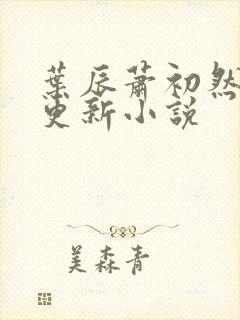 葉辰蕭初然
更新小説
美森青